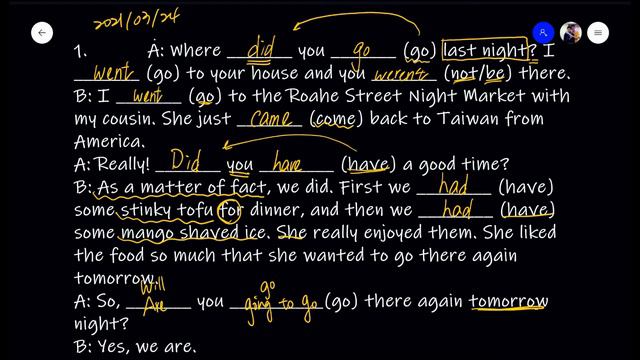 2021/03/24
1. A: Where did you go (go) last night? I
went (go) to your house and you weren't (not/be) there.
B: I went (go) to the Roahe Street Night Market with
my cousin. She just came (come) back to Taiwan from
America.
A: Really! Did you have (have) a good time?
B: As a matter of fact, we did. First we had (have)
some stinky tofu for dinner, and then we had (have)
some mango shaved ice. She really enjoyed them. She liked
the food so much that she wanted to go there again
tomorrow.
Will go
A: So, Are you going to go (go) there again tomorrow
night?
B: Yes, we are.